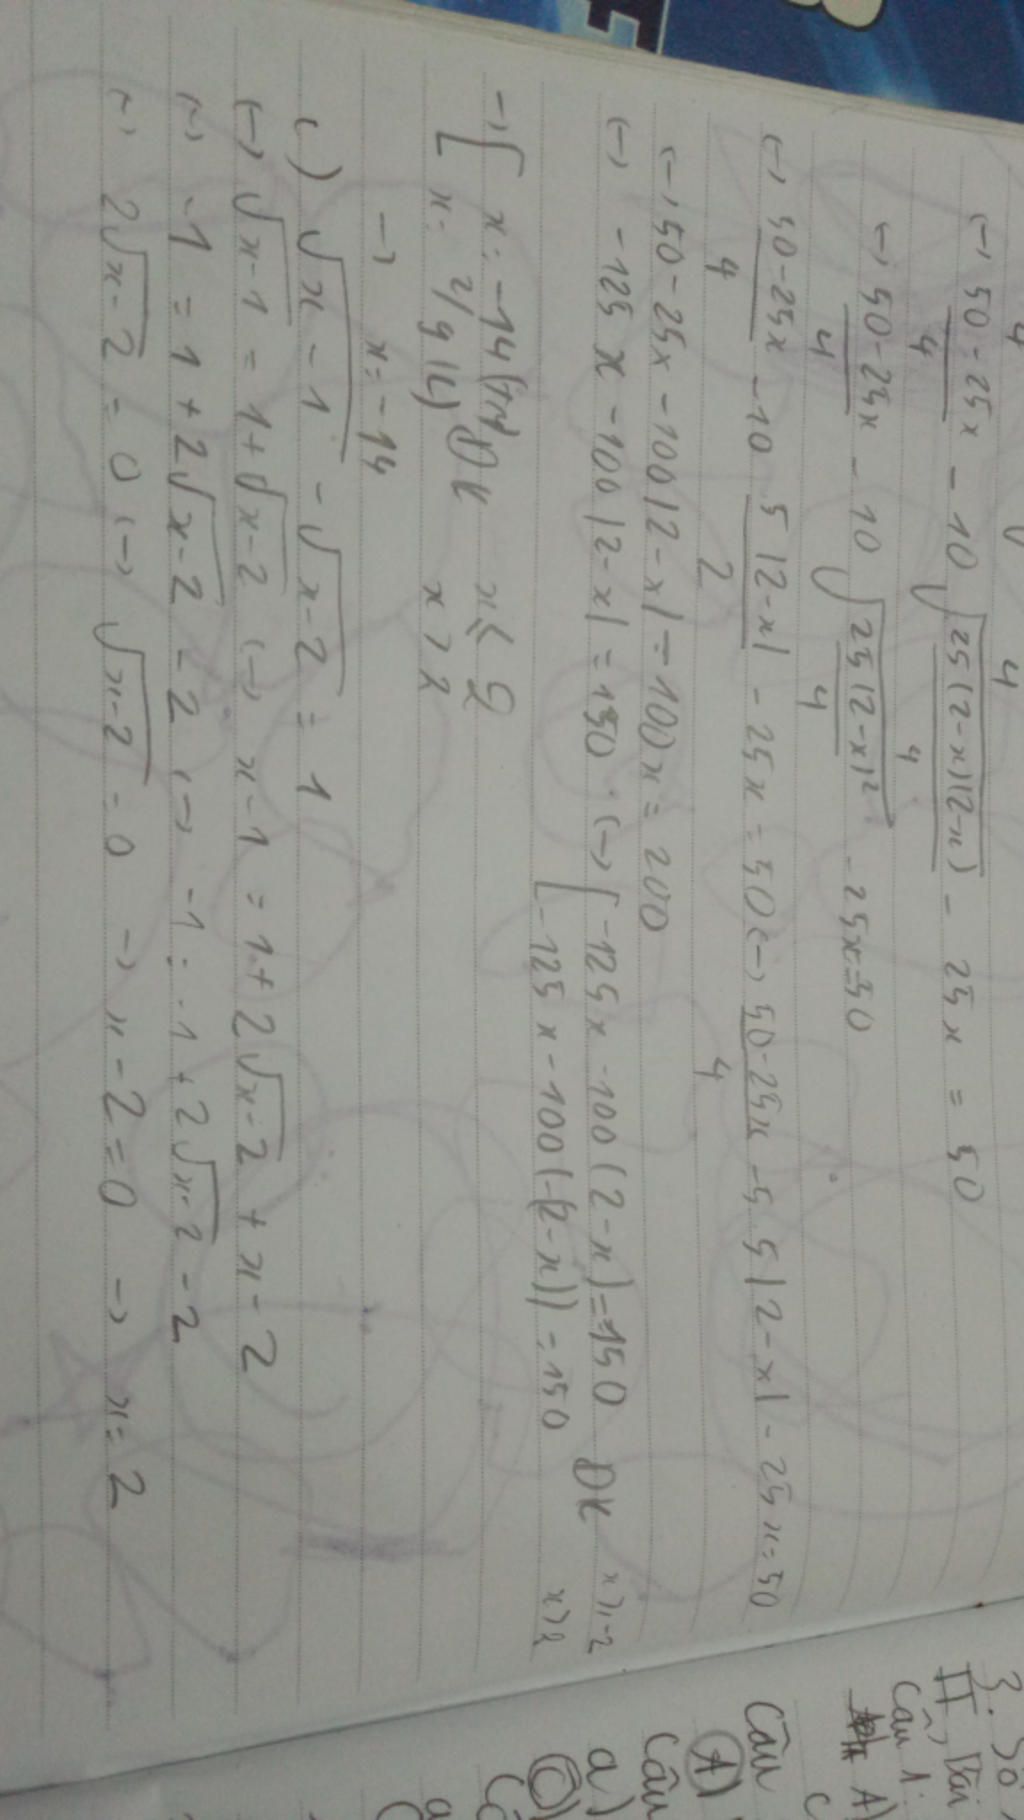 (-) 50-25x/4 - 10 √25(2-x)(2-x)/4 - 25x = 50
(-) 50-25x/4 - 10 √25|2-x|²/4 - 25x=50
(-) 50-25x/4 - 10 5|2-x|/2 - 25x = 50 (-) 50-25x/4 - 5.5|2-x| - 25x=50
(-) 50-25x - 100|2-x| - 100x = 200
(-) -125x - 100|2-x| = 150 (-) [ -125x - 100(2-x) = 150 ĐK
-125x - 100(-(2-x)) = 150 x>2
→ [ x = -14 (tm) ĐK x≤2
x = 2/9 (L) x>2
→ x = -14
c) √x-1 - √x-2 = 1
(-) √x-1 = 1+√x-2 (-) x-1 = 1+2√x-2 + x-2
(-) -1 = 1+2√x-2 - 2 (-) -1 = -1 + 2√x-2 - 2
(-) 2√x-2 = 0 (-) √x-2 = 0 → x-2=0 → x=2
3. Số
II, Bài
Câu 1.
A)
Câu
A)
Câu
a)
C)